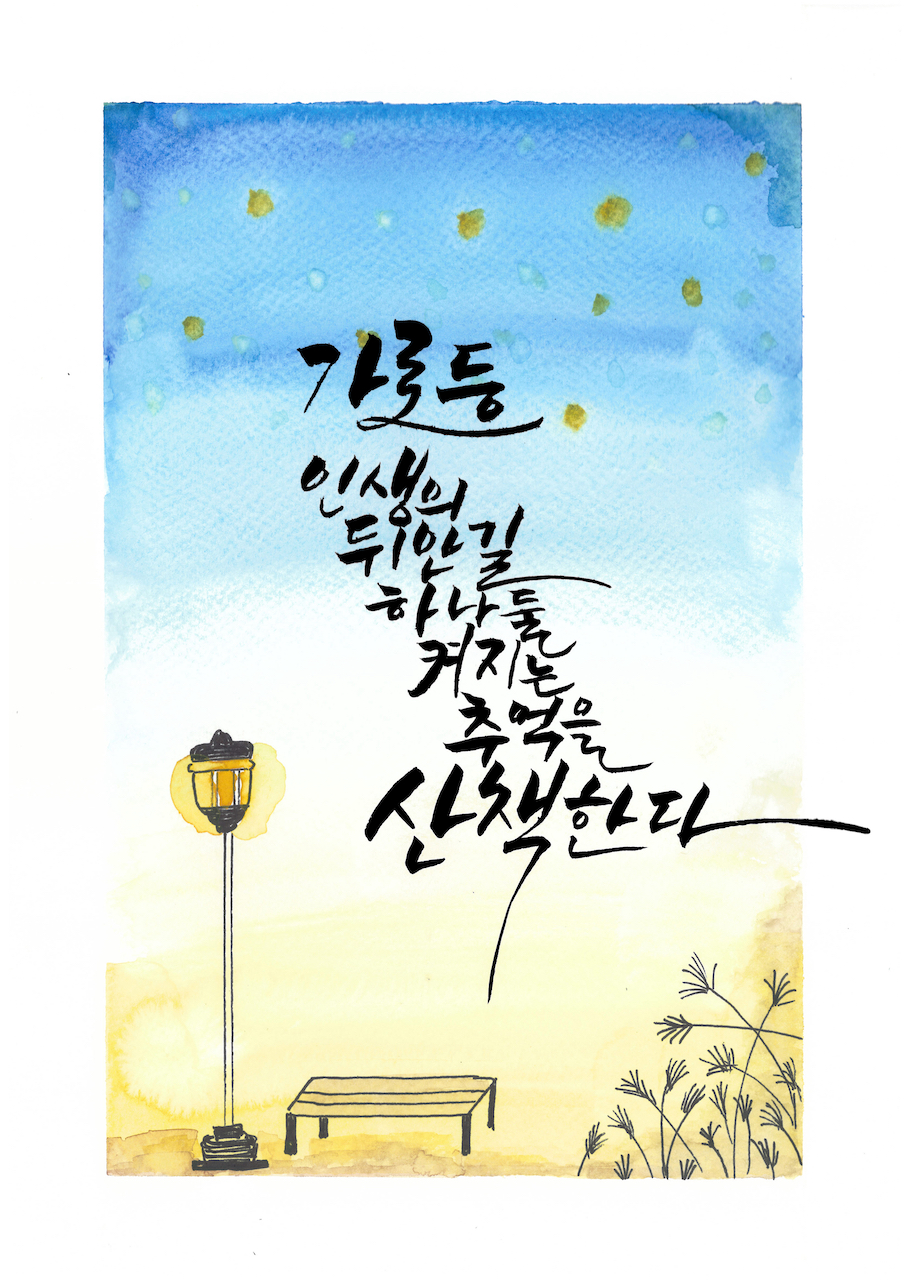 가로등
인생의
뒤안길
하나둘
켜지는
추억을
산책한다